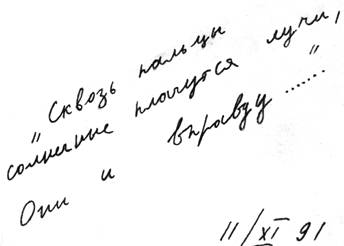 "Сквозь пальцы
солнечные плачутся лучи,
Они и вправду ......"
11/XI 91